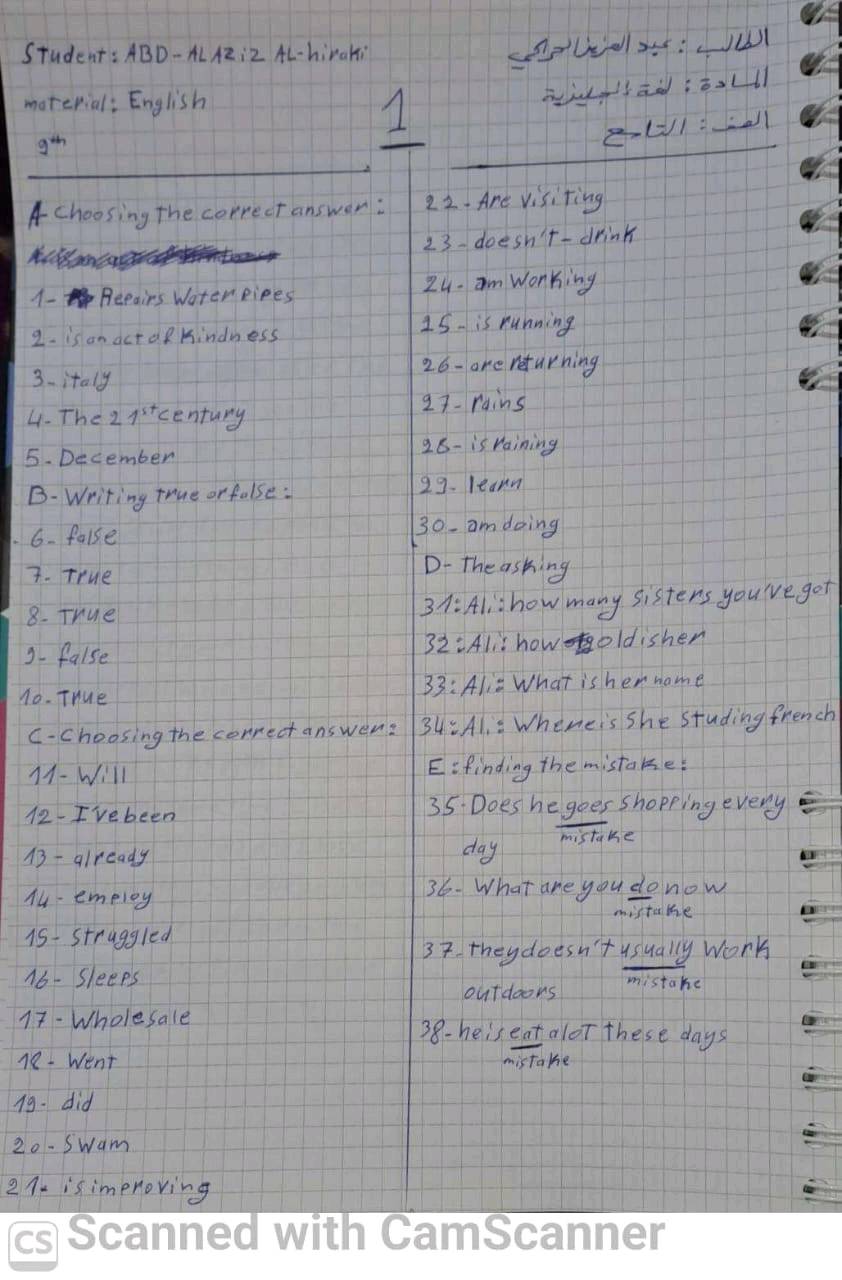 Student: ABD-ALAZiZ AL-hiraki
material: English
9th
1
الطالب: عبد العزيز الحراكي
المادة: لغة إنجليزية
الصف: التاسع
A-Choosing the correct answer:
1- Repairs Water Pipes
2- is an act of Kindness
3- italy
4- The 21st century
5- December
B- Writing true or false:
6- false
7- True
8- True
9- false
10- True
C-Choosing the correct answer:
11- Will
12- I've been
13- already
14- employ
15- Struggled
16- Sleeps
17- Wholesale
18- Went
19- did
20- Swam
21- is improving
22- Are visiting
23- doesn't-drink
24- am Working
25- is running
26- are returning
27- rains
28- is raining
29- learn
30- am doing
D- The asking
31: Ali: how many sisters you've got
32: Ali: how old is her
33: Ali: What is her name
34: Ali: Where is She Studing french
E: finding the mistake:
35- Does he goes shopping every
mistake
day
36- What are you do now
mistake
37- they doesn't usually work
mistake
outdoors
38- he is eat alot these days
mistake
CS Scanned with CamScanner